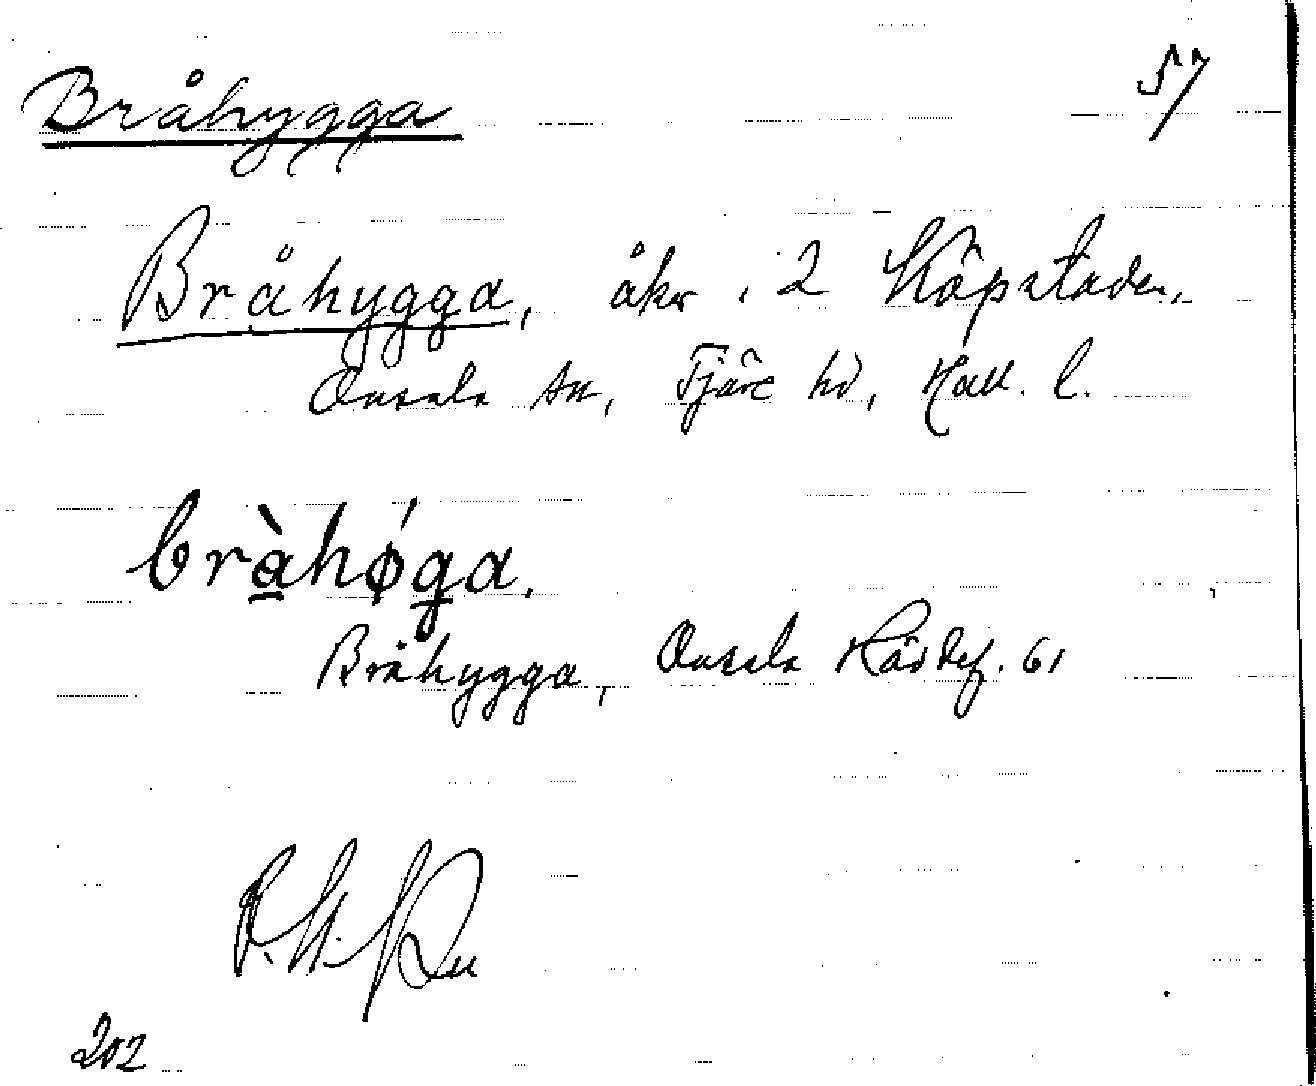 Bråhygga 57
Bråhygga, åker i 2 Köpstaden,
Onsala sn, Fjäre hd, Hall. l.
bràhǿga.
Bråhygga, Onsala Häs Def. 61
202